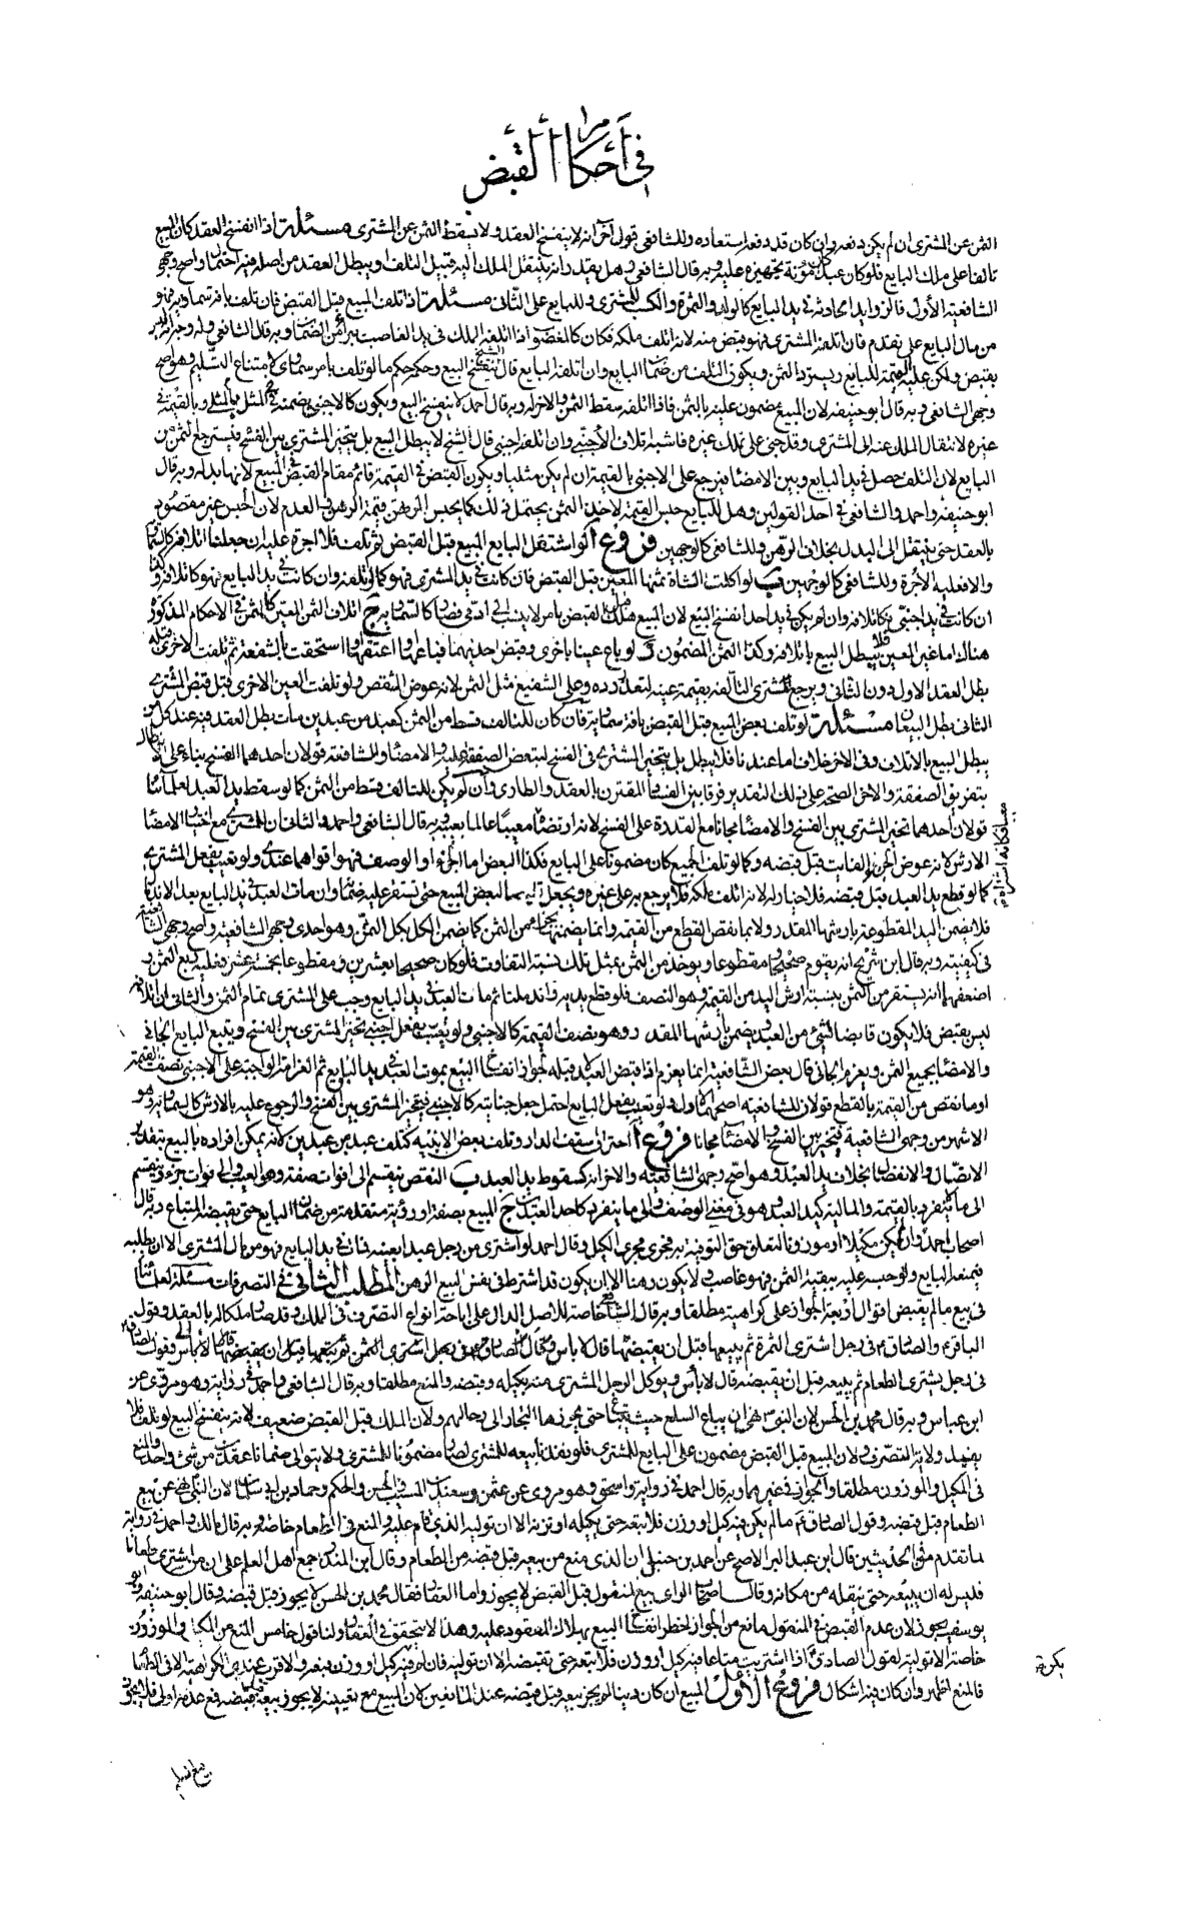 في أحكام القبض
الثمن عن المشتري ان لم يكن دفعه وان كان قد دفعه استعاده وللشافعي قول آخر انه لا ينفسخ العقد ولا يسقط الثمن عن المشتري مسئلة اذا انفسخ العقد كان المبيع
تالفا على ملك البايع فلو كان عبدا كان مؤنة تجهيزه عليه وبه قال الشافعي وهل يقدر انه ينتقل الملك اليه قبيل التلف او يبطل العقد من اصله فيه احتمال واصح وجهي
الشافعية الأول فالزوايد الحادثة في يد البايع كالولد والثمرة والكسب للمشتري وللبايع على الثاني مسئلة اذا تلف المبيع قبل القبض فان تلف بافة سماوية فهو
من مال البايع على ما تقدم فان اتلفه المشتري فهو قبض منه لانه اتلف ملكه فكان كالمغصوب اذا اتلفه المالك في يد الغاصب يبرأ من الضمان وبه قال الشافعي وله وجه انه ليس
بقبض ولكن عليه القيمة للبايع ويسترد الثمن ويكون التلف من ضمان البايع وان اتلفه البايع قال الشيخ ينفسخ البيع وحكمه حكم ما لو تلف بامر سماوي لامتناع التسليم وهو اصح
وجهي الشافعي وبه قال ابو حنيفة لان المبيع مضمون عليه بالثمن فاذا اتلفه سقط الثمن والاخر له وبه قال احمد لا ينفسخ البيع ويكون كالاجنبي يضمنه في المثلي بالمثل وبالقيمة في
غيره لانتقال الملك عنه الى المشتري وقد جنى على ملك غيره فاشبه اتلاف الأجنبي وان اتلفه اجنبي قال الشيخ لا يبطل البيع بل يتخير المشتري بين الفسخ فيسترجع الثمن من
البايع لان التلف حصل في يد البايع وبين الامضاء فيرجع على الاجنبي بالقيمة ان لم يكن مثليا ويكون القبض في القيمة قائم مقام القبض في المبيع لانها بدله وبه قال
ابو حنيفة واحمد والشافعي في احد القولين وهل للبايع حبس القيمة لاخذ الثمن يحتمل ذلك كما يحبس الرهن قيمة الرهن والعدم لان الحبس غير مقصود
بالعقد حتى ينتقل الى البدل بخلاف الرهن وللشافعي كالوجهين فروع آ لو استغل البايع المبيع قبل القبض ثم تلف فلا اجرة عليه ان جعلنا اتلافه كالسماوية
والا فعليه الاجرة وللشافعي كالوجهين ب لو اكلت الشاة ثمنها المعين قبل القبض فان كانت في يد المشتري فهو كما لو اتلفه وان كانت في يد البايع فهو كاتلافه وكذا
ان كانت في يد اجنبي فكاتلافه وان لم يكن في يد احد انفسخ البيع لان المبيع هلك قبل القبض بامر لا ينسب الى ادمي فصار كالسماوية ج اتلاف الثمن المعين كالمثمن في الاحكام المذكورة
هناك اما غير المعين فلا يبطل البيع باتلافه وكذا الثمن المضمون د لو باع عينا باخرى وقبض احديهما فباعها او اعتقها او استحقت بالشفعة ثم تلفت الاخرى قبل
بطل العقد الاول دون الثاني ويرجع المشتري التالفة بقيمة عينه لتعذر رده وعلى الشفيع مثل الثمن لانه عوض الشقص ولو تلفت العين الاخرى قبل قبض المشتري
الثاني بطل البيعان مسئلة لو تلف بعض المبيع قبل القبض بافة سماوية فان كان للتالف قسط من الثمن كعبد من عبدين مات بطل العقد فيه عند كل من
يبطل البيع بالاتلاف وفي الاخر خلاف اما عندنا فلا يبطل بل يتخير المشتري في الفسخ لتبعض الصفقة عليه والامضاء وللشافعية قولان احدهما الفسخ بناء على
بتفريق الصفقة والاخر الصحة على ذلك التقدير فرقا بين الفساد المقترن بالعقد والطاري وان لم يكن للتالف قسط من الثمن كما لو سقط يد العبد لعلمائنا
قولان احدهما تخير المشتري بين الفسخ والامضاء مجانا مع القدرة على الفسخ لانه ارتضاه معيبا عالما بعيبه وبه قال الشافعي واحمد والثاني ان للمشتري مع اختيار الامضاء
الارش لانه عوض الجزء الفائت قبل قبضه وكما لو تلف الجميع كان مضمونا على البايع فكذا البعض اما الجزء او الوصف فهو اقواهما عندي ولو تعيب بفعل المشتري
كما لو قطع يد العبد قبل قبضه فلا خيار له لانه اتلف ملكه فلا يرجع به على غيره ويجعل قابضا لبعض المبيع حتى تستقر عليه ضمانه وان مات العبد في يد البايع بعد الاندمال
فلا يضمن اليد المقطوعة بارشها المقدر ولا بما نقص القطع من القيمة وانما يضمنها بجزء من الثمن كما يضمن الكل بكل الثمن وهو احد وجهي الشافعية واصح وجهي الشافعية
في كيفيته وبه قال ابن شريح انه يقوم صحيحا ومقطوعا ويؤخذ من الثمن بمثل تلك نسبة التفاوت فلو كان صحيحا بعشرين ومقطوعا بخمسة عشر فعليه ربع الثمن و
اضعفهما انه يستقر من الثمن بنسبة ارش اليد من القيمة وهو النصف فلو قطع يديه فاندملتا ثم مات العبد في يد البايع وجب على المشتري تمام الثمن والثاني ان اتلافه
ليس بقبض فلا يكون قابضا لشيء من العبد ويضمن بأرشها المقدر وهو نصف القيمة كالاجنبي ولو تعيب بفعل اجنبي تخير المشتري بين الفسخ ويتبع البايع الجاني
والامضاء بجميع الثمن ويغرم الجاني قال بعض الشافعية انما يغرم اذا قبض العبد لا قبله لجواز انفساخ البيع بموت العبد في يد البايع ثم الغرامة الواجبة على الاجنبي نصف القيمة
او ما نقص من القيمة بالقطع قولان للشافعية اصحهما الاول ولو تعيب بفعل البايع احتمل جعل جنايته كالاجنبي فيتخير المشتري بين الفسخ والرجوع عليه بالارش كالسماوية وهو
الاشهر من وجهي الشافعية فيتخير بين الفسخ والامضاء مجانا فروع آ احتراق سقف الدار وتلف بعض الابنية كتلف عبد من عبدين لانه يمكن افراده بالبيع بتقدير
الاتصال والانفصال بخلاف يد العبد وهو اصح وجهي الشافعية والاخر انه كسقوط يد العبد ب النقص ينقسم الى فوات صفة وهو العيب والى فوات جزء وينقسم
الى ما ينفرد بالقيمة والمالية كيد العبد وهو في معنى الوصف والى ما ينفرد كاحد العبدين ج المبيع بصفة او رؤية متقدمة من ضمان البايع حتى يقبضه المبتاع وبه قال
اصحاب احمد وان لم يكن مكيلا او موزونا لتعلق حق التوفية به فجرى مجرى الكيل وقال احمد لو اشترى من رجل عبدا بعينه فمات في يد البايع فهو من مال المشتري الا ان يطلبه
فيمنعه البايع ولو حبسه عليه ببقية الثمن فهو غاصب ولا يكون رهنا الا ان يكون قد اشترط في نفس البيع الرهن المطلب الثاني في التصرفات مسئلة لعلمائنا
في بيع ما لم يقبض اقوال اربعة الجواز على كراهية مطلقا وبه قال الشافعي خاصة للاصل الدال على اباحة انواع التصرف في الملك وقد صار ملكا له بالعقد وقول
الباقر والصادق ع في رجل اشترى الثمرة ثم يبيعها قبل ان يقبضها قال لا بأس وسئل الصادق ع في رجل اشترى الثمن ثم يبيعها قبل ان يقبضها قال لا بأس وقول الصادق
في رجل يشتري الطعام ثم يبيعه قبل ان يقبضه قال لا بأس ويوكل الرجل المشتري منه بكيله وقبضه والمنع مطلقا وبه قال الشافعي واحمد في رواية وهو مروي عن
ابن عباس وبه قال محمد بن الحسن لان النبي ص نهى ان يباع السلع حيث تبتاع حتى يحوزها التجار الى رحالهم ولان الملك قبل القبض ضعيف لانه ينفسخ البيع لو تلف فلا
يفيد ولاية التصرف ولان المبيع قبل القبض مضمون على البايع للمشتري فلو نفذنا بيعه للمشتري لصار مضمونا للمشتري ولا يتوالى ضمانا عقدين من شيء واحد والمنع
في المكيل والموزون مطلقا والجواز في غيرهما وبه قال احمد في رواية واسحق وهو مروي عن عثمن وسعيد بن المسيب والحسن والحكم وحماد بن ابي سليمان لان النبي ص نهى عن بيع
الطعام قبل قبضه وقول الصادق ع ما لم يكن فيه كيل او وزن فلا تبعه حتى تكيله او تزنه الا ان توليه الذي قام عليه والمنع في الطعام خاصة وبه قال مالك واحمد في رواية
ما تقدم من الحديثين قال ابن عبد البر الاصح عن احمد بن حنبل ان الذي منع من بيعه قبل قبضه من الطعام وقال ابن المنذر اجمع اهل العلم على ان من اشترى طعاما
فليس له ان يبيعه حتى ينقله من مكانه وقال اصحاب الراي بيع المنقول قبل القبض لا يجوز واما العقار فقال محمد بن الحسن لا يجوز قبل قبضه وقال ابو حنيفة وابو
يوسف يجوز لان عدم القبض في المنقول مانع من الجواز لخطر انفساخ البيع بهلاك المعقود عليه وهذا لا يتحقق في العقار ولنا قول خامس المنع من المكيل والموزون
خاصة الا تولية لقول الصادق ع اذا اشتريت متاعا فيه كيل او وزن فلا تبعه حتى تقبضه الا ان توليه فان لم فيه كيل او وزن فبعه والاقرب عندي الكراهية الا في الطعام
يكن
فالمنع اظهر وان كان فيه اشكال فروع الأول المبيع ان كان دينا لم يجز بيعه قبل قبضه عند المانعين لان المبيع مع تعيينه لا يجوز بيعه قبل قبضه فمع عدمه اولى فلا يجوز
بيع السلم